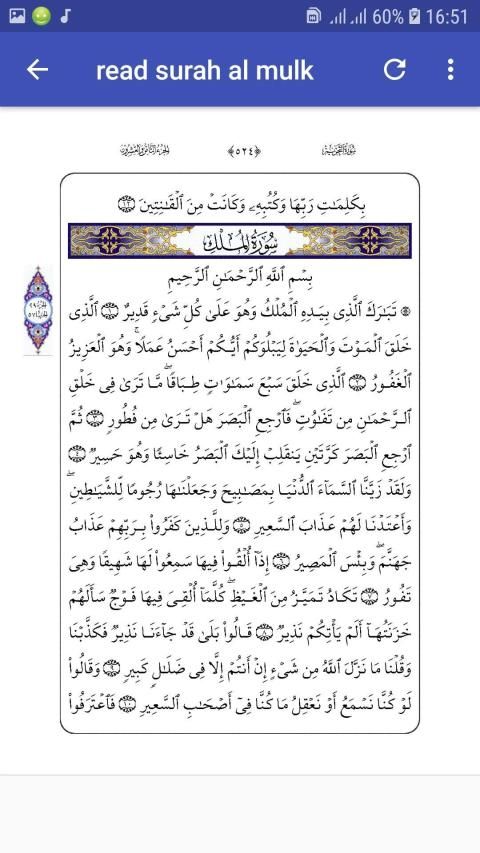 60% 16:51
read surah al mulk
سُورَةُ التَّحْرِيمِ ﴿٥٢٤﴾ الجُزْءُ الثَّامِنُ وَالعِشْرُونَ
بِكَلِمَٰتِ رَبِّهَا وَكُتُبِهِۦ وَكَانَتْ مِنَ ٱلْقَٰنِتِينَ ١٢
سُورَةُ المُلْكِ
بِسْمِ ٱللَّهِ ٱلرَّحْمَٰنِ ٱلرَّحِيمِ
۞ تَبَٰرَكَ ٱلَّذِى بِيَدِهِ ٱلْمُلْكُ وَهُوَ عَلَىٰ كُلِّ شَىْءٍ قَدِيرٌ ١ ٱلَّذِى
خَلَقَ ٱلْمَوْتَ وَٱلْحَيَوٰةَ لِيَبْلُوَكُمْ أَيُّكُمْ أَحْسَنُ عَمَلًا ۚ وَهُوَ ٱلْعَزِيزُ
ٱلْغَفُورُ ٢ ٱلَّذِى خَلَقَ سَبْعَ سَمَٰوَٰتٍ طِبَاقًا ۖ مَّا تَرَىٰ فِى خَلْقِ
ٱلرَّحْمَٰنِ مِن تَفَٰوُتٍ ۖ فَٱرْجِعِ ٱلْبَصَرَ هَلْ تَرَىٰ مِن فُطُورٍ ٣ ثُمَّ
ٱرْجِعِ ٱلْبَصَرَ كَرَّتَيْنِ يَنقَلِبْ إِلَيْكَ ٱلْبَصَرُ خَاسِئًا وَهُوَ حَسِيرٌ ٤
وَلَقَدْ زَيَّنَّا ٱلسَّمَآءَ ٱلدُّنْيَا بِمَصَٰبِيحَ وَجَعَلْنَٰهَا رُجُومًا لِّلشَّيَٰطِينِ ۖ
وَأَعْتَدْنَا لَهُمْ عَذَابَ ٱلسَّعِيرِ ٥ وَلِلَّذِينَ كَفَرُوا۟ بِرَبِّهِمْ عَذَابُ
جَهَنَّمَ ۖ وَبِئْسَ ٱلْمَصِيرُ ٦ إِذَآ أُلْقُوا۟ فِيهَا سَمِعُوا۟ لَهَا شَهِيقًا وَهِىَ
تَفُورُ ٧ تَكَادُ تَمَيَّزُ مِنَ ٱلْغَيْظِ ۖ كُلَّمَآ أُلْقِىَ فِيهَا فَوْجٌ سَأَلَهُمْ
خَزَنَتُهَآ أَلَمْ يَأْتِكُمْ نَذِيرٌ ٨ قَالُوا۟ بَلَىٰ قَدْ جَآءَنَا نَذِيرٌ فَكَذَّبْنَا
وَقُلْنَا مَا نَزَّلَ ٱللَّهُ مِن شَىْءٍ إِنْ أَنتُمْ إِلَّا فِى ضَلَٰلٍ كَبِيرٍ ٩ وَقَالُوا۟
لَوْ كُنَّا نَسْمَعُ أَوْ نَعْقِلُ مَا كُنَّا فِىٓ أَصْحَٰبِ ٱلسَّعِيرِ ١٠ فَٱعْتَرَفُوا۟